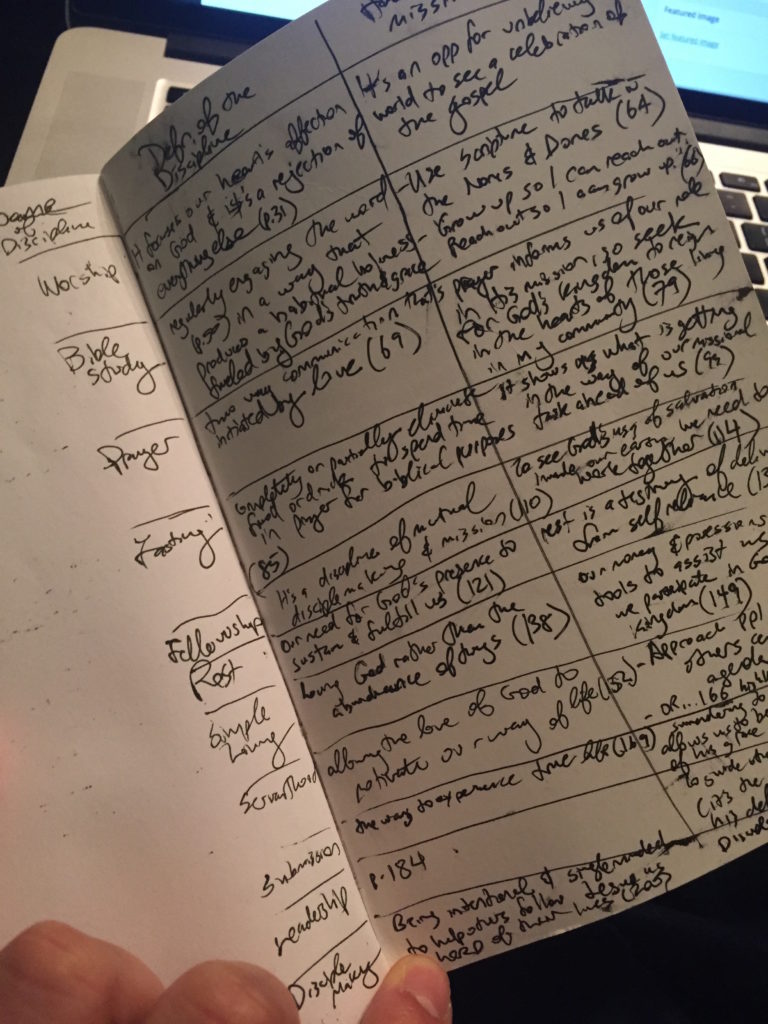 Featured image
Set featured image
mission
Defn. of the
Discipline
of Discipline
It's an opp for unbelieving
world to see a celebration of
the gospel
Worship
It focuses our heart's affection
on God & it's a rejection of
everything else (p.31)
Bible
Study
regularly engaging the word
(p.50) in a way that
produces a habitual holiness
fueled by God's truth & grace
- Use scripture to talk w
the Nones & Dones (64)
- Grow up so I can reach out.
Reach out so I can grow up."(66)
Prayer
two way communication that's
initiated by love (69)
prayer informs us of our role
in His mission, so seek
for God's kingdom to reign
in the hearts of those living
in my community (79)
Fasting
completely or partially
food or drink to spend time
in prayer for biblical purposes
(85)
It shows us what is getting
in the way of our missional
task ahead of us (99)
Fellowship
It's a discipline of mutual
disciplemaking & mission (110)
To see God's of salvation
our we need to
work together (114
Rest
our need for God's presence to
sustain & fulfill us (121)
rest is a testimony of
from self reliance (13
Simple
Living
loving God rather than the
abundance of things (138)
our money & possessions
tools to assist us
we participate in Go
Kingdom (149)
Servanthood
allowing the love of God to
motivate our way of life (152)
- Approach ppl
others
- OR...166
Submission
the way to experience true life (169)
surrendering to
allows us to be
of his grace
Leadership
p. 184
To guide
his
Disciple
Making
Being intentional & singleminded
to help others follow Jesus as
Lord of their lives (205)